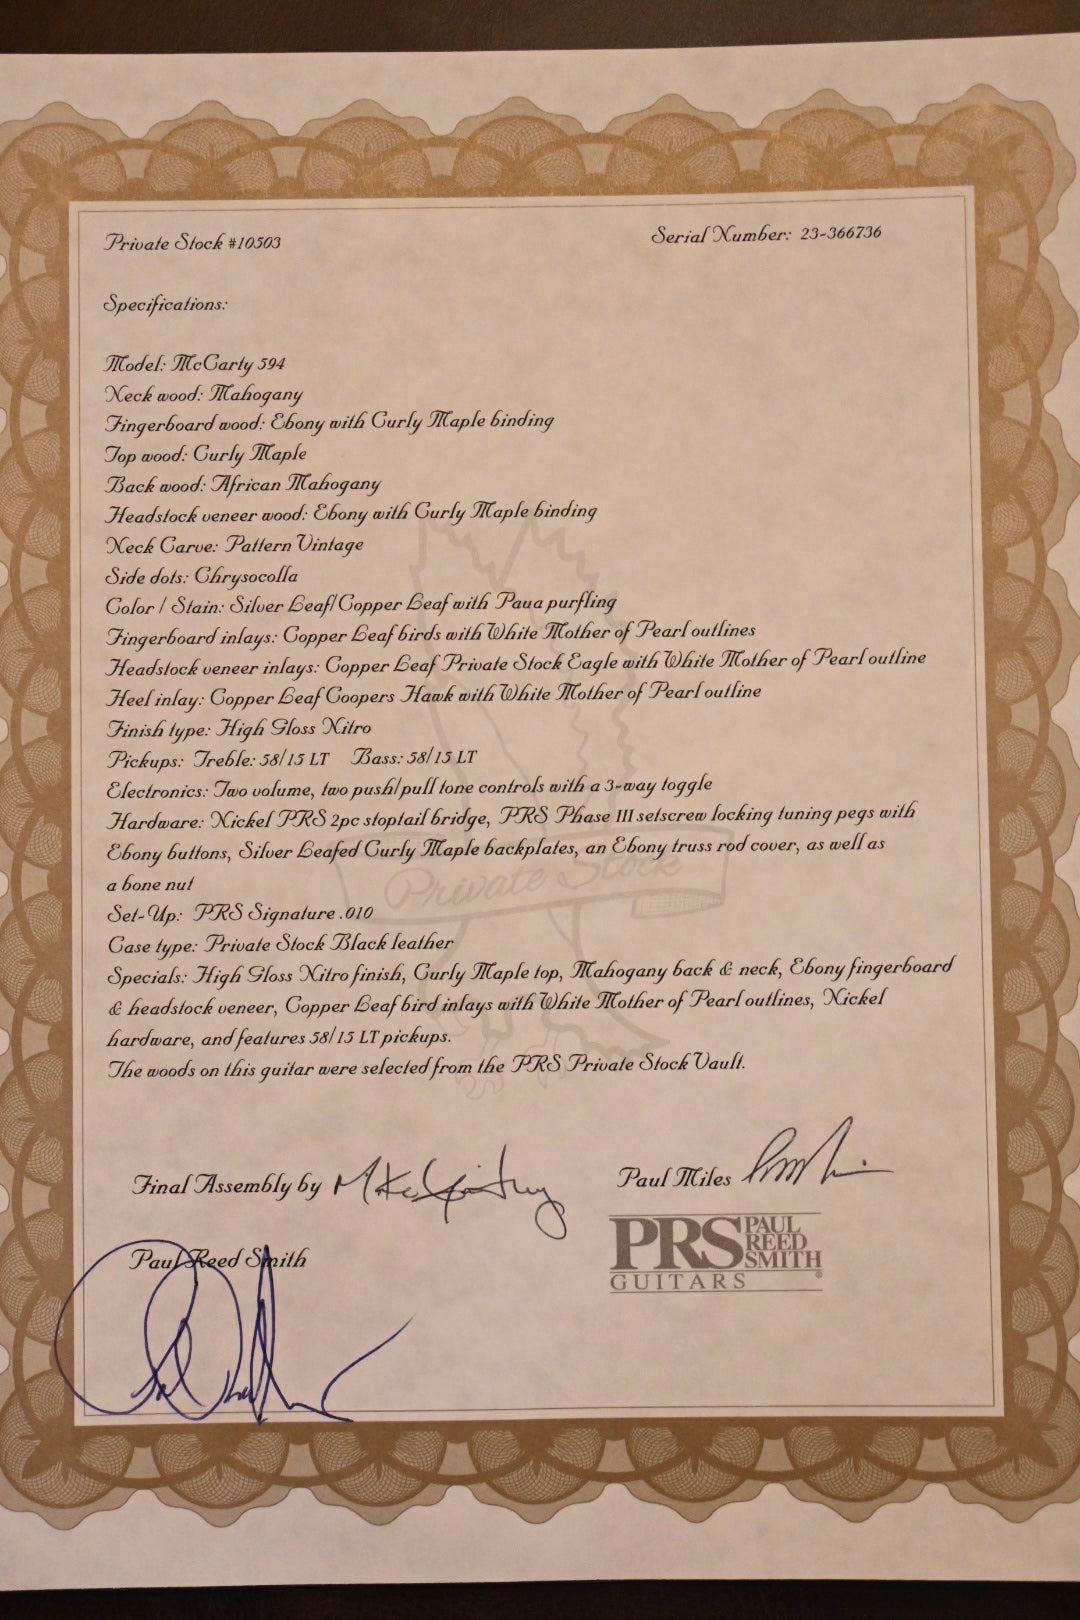 Private Stock #10503
Serial Number: 23-366736
Specifications:
Model: McCarty 594
Neck wood: Mahogany
Fingerboard wood: Ebony with Curly Maple binding
Top wood: Curly Maple
Back wood: African Mahogany
Headstock veneer wood: Ebony with Curly Maple binding
Neck Carve: Pattern Vintage
Side dots: Chrysocolla
Color / Stain: Silver Leaf/Copper Leaf with Paua purfling
Fingerboard inlays: Copper Leaf birds with White Mother of Pearl outlines
Headstock veneer inlays: Copper Leaf Private Stock Eagle with White Mother of Pearl outline
Heel inlay: Copper Leaf Coopers Hawk with White Mother of Pearl outline
Finish type: High Gloss Nitro
Pickups: Treble: 58/15 LT Bass: 58/15 LT
Electronics: Two volume, two push/pull tone controls with a 3-way toggle
Hardware: Nickel PRS 2pc stoptail bridge, PRS Phase III setscrew locking tuning pegs with
Ebony buttons, Silver Leafed Curly Maple backplates, an Ebony truss rod cover, as well as
a bone nut
Private Stock
Set-Up: PRS Signature .010
Case type: Private Stock Black leather
Specials: High Gloss Nitro finish, Curly Maple top, Mahogany back & neck, Ebony fingerboard
& headstock veneer, Copper Leaf bird inlays with White Mother of Pearl outlines, Nickel
hardware, and features 58/15 LT pickups.
The woods on this guitar were selected from the PRS Private Stock Vault.
Final Assembly by
Paul Miles
Paul Reed Smith
PRS PAUL REED SMITH
GUITARS